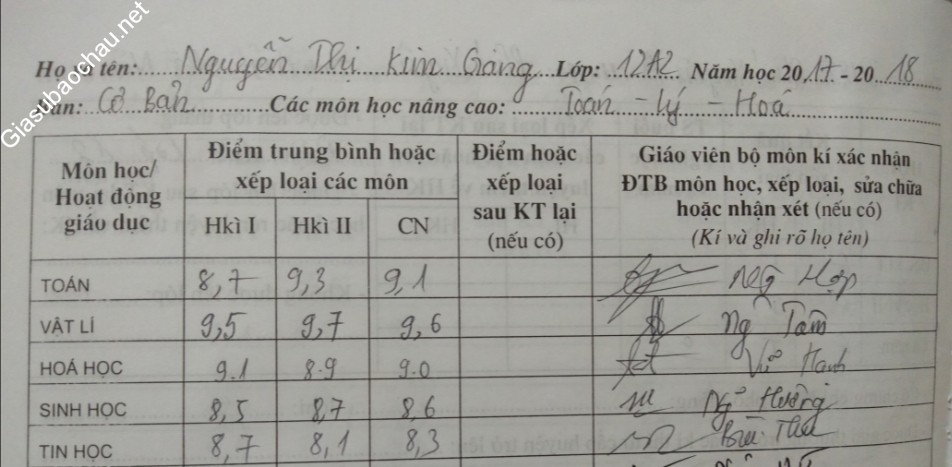 Giasubaochau.net
Họ và tên: Nguyễn Thị Kim Gang Lớp: 12A2 Năm học 2017 - 2018
Ban: Cơ Bản Các môn học nâng cao: Toán - Lý - Hoá
Môn học/ Hoạt động giáo dục
Điểm trung bình hoặc xếp loại các môn
Hkì I Hkì II CN
Điểm hoặc xếp loại sau KT lại (nếu có)
Giáo viên bộ môn kí xác nhận
ĐTB môn học, xếp loại, sửa chữa
hoặc nhận xét (nếu có)
(Kí và ghi rõ họ tên)
TOÁN 8,7 9,3 9,1 Ng Hợp
VẬT LÍ 9,5 9,7 9,6 Ng Tâm
HOÁ HỌC 9.1 8.9 9.0 Hạnh
SINH HỌC 8,5 8,7 8,6 Hường
TIN HỌC 8,7 8,1 8,3 Bùi